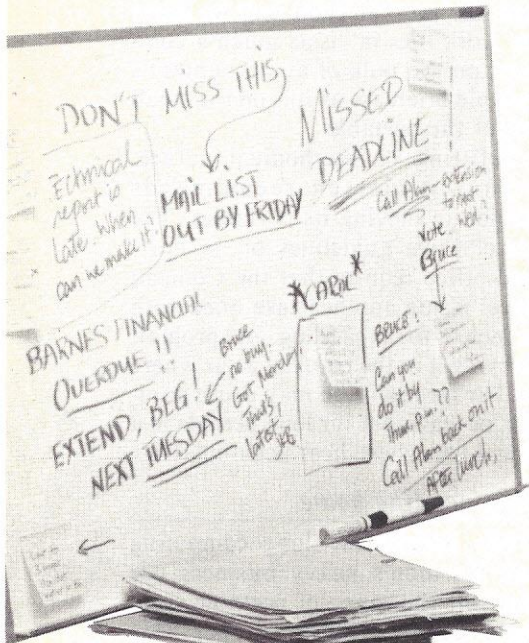 DON'T MISS THIS
MAIL LIST
OUT BY FRIDAY
Technical
report is
late. When
can we make it?
MISSED
DEADLINE
!
Call Alan - extension
to next
week?
Vote
Bruce
BARNES FINANCIAL
OVERDUE!!
EXTEND, BEG!
NEXT TUESDAY
Bruce
no buy.
Got Monday,
That's
latest,
*CAROL*
BRUCE!
Can you
do it by
Thur. p.m.??
Call Alan back on it
AFTER lunch,